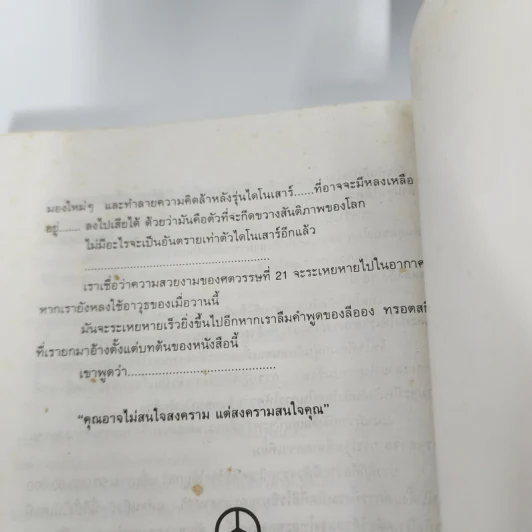 มองใหม่ๆ และทำลายความคิดล้าหลังรุ่นไดโนเสาร์......ที่อาจจะมีหลงเหลือ
อยู่...... ลงไปเสียได้ ด้วยว่ามันคือตัวที่จะกีดขวางสันติภาพของโลก
ไม่มีอะไรจะเป็นอันตรายเท่าตัวไดโนเสาร์อีกแล้ว
................................................
เราเชื่อว่าความสวยงามของศตวรรษที่ 21 จะระเหยหายไปในอากาศ
หากเรายังหลงใช้อาวุธของเมื่อวานนี้
มันจะระเหยหายเร็วยิ่งขึ้นไปอีกหากเราลืมคำพูดของลีออง
ที่เรายกมาอ้างตั้งแต่บทต้นของหนังสือนี้
เขาพูดว่............................................
“คุณอาจไม่สนใจสงคราม แต่สงครามสนใจคุณ”